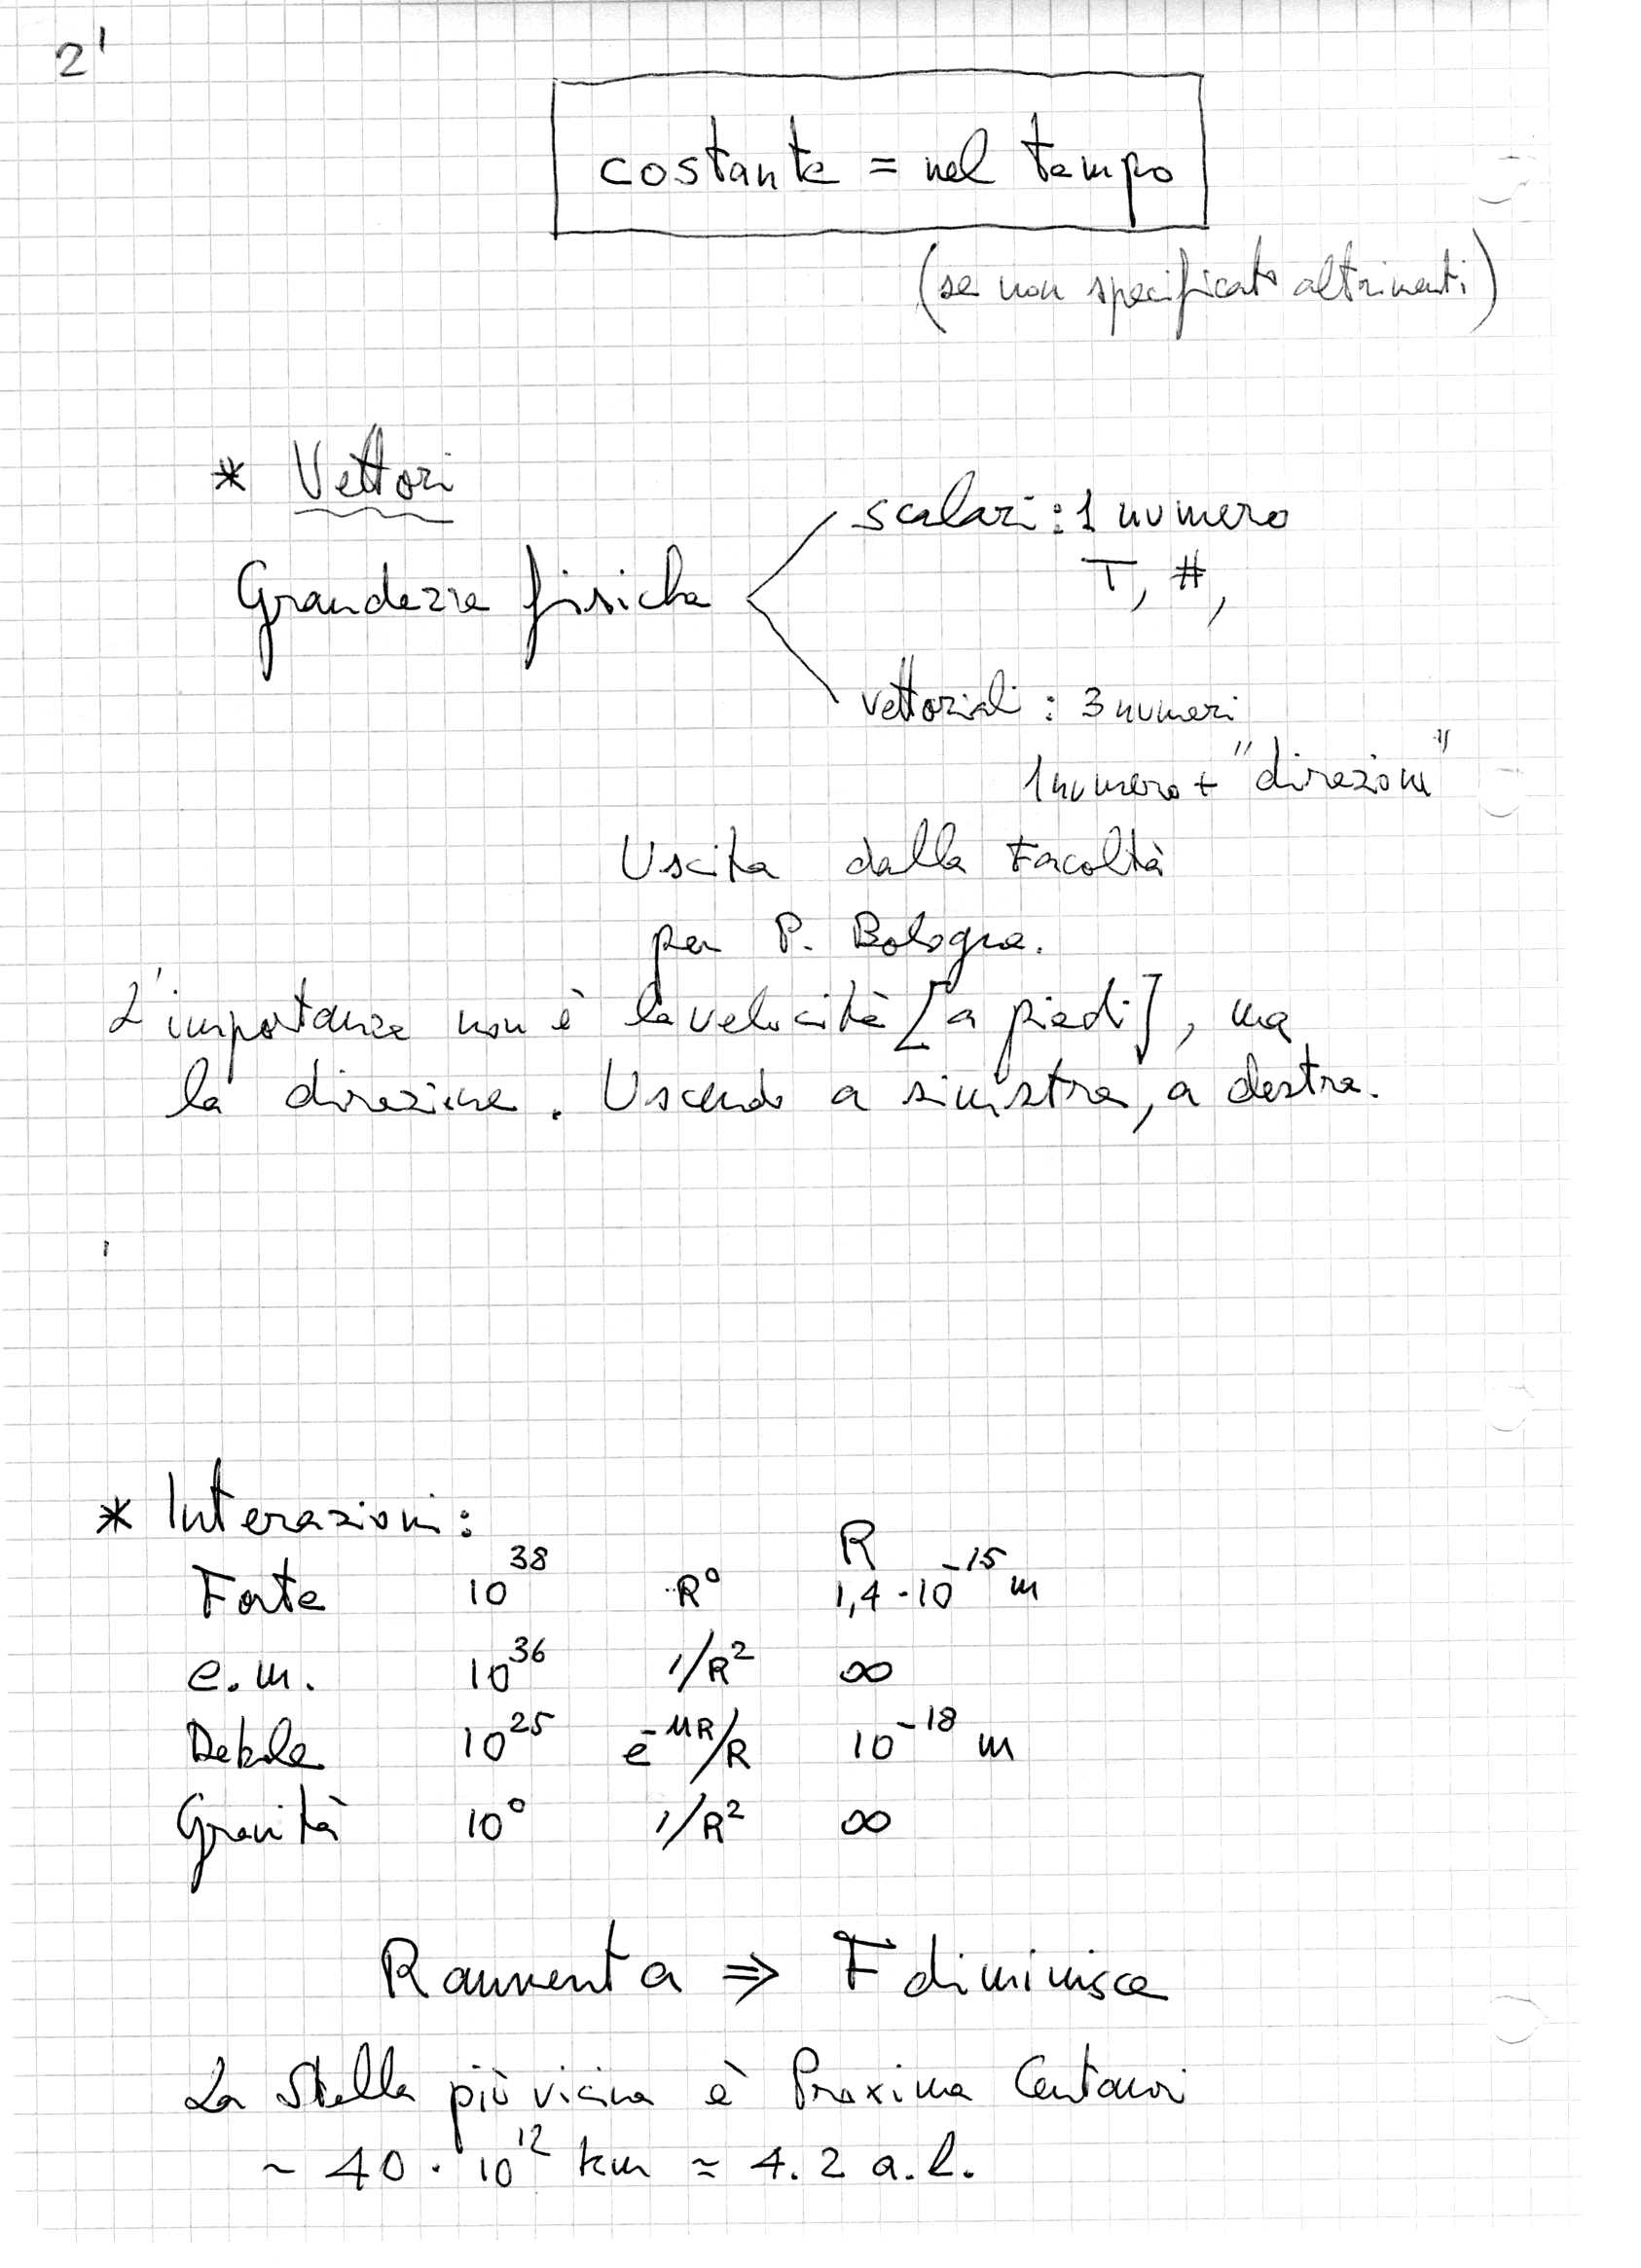 2'
costante = nel tempo
(se non specificato altrimenti)
* Vettori
Grandezze fisiche
scalari: 1 numero
T, #,
vettoriali: 3 numeri
1 numero + "direzione"
Uscita dalla Facoltà
per P. Bologna.
L'importanza non è la velocità [a piedi], ma
la direzione. Uscendo a sinistra, a destra.
* Interazioni:
R
Forte 10^38 R^0 1,4 · 10^-15 m
e.m. 10^36 1/R^2 ∞
Debole 10^25 e^-MR/R 10^-18 m
Gravità 10^0 1/R^2 ∞
R aumenta ⇒ F diminuisce
La Stella più vicina è Proxima Centauri
~ 40 · 10^12 km ≈ 4.2 a.l.